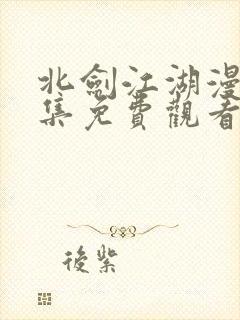 北劍江湖漫
集免費觀看
後紫